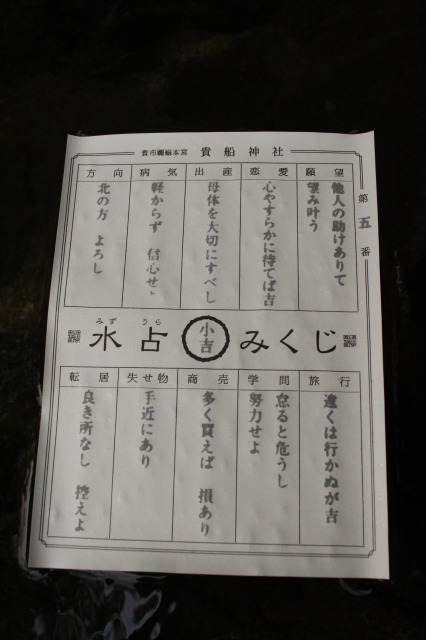 貴布禰総本宮 貴船神社
第五番
願望
他人の助けありて
望み叶う
恋愛
心やすらかに待てば吉
出産
母体を大切にすべし
病気
軽からず 信心せよ
方向
北の方 よろし
みず うら
水占 小吉 みくじ
旅行
遠くは行かぬが吉
学問
怠ると危うし
努力せよ
商売
多く買えば 損あり
失せ物
手近にあり
転居
良き所なし 控えよ